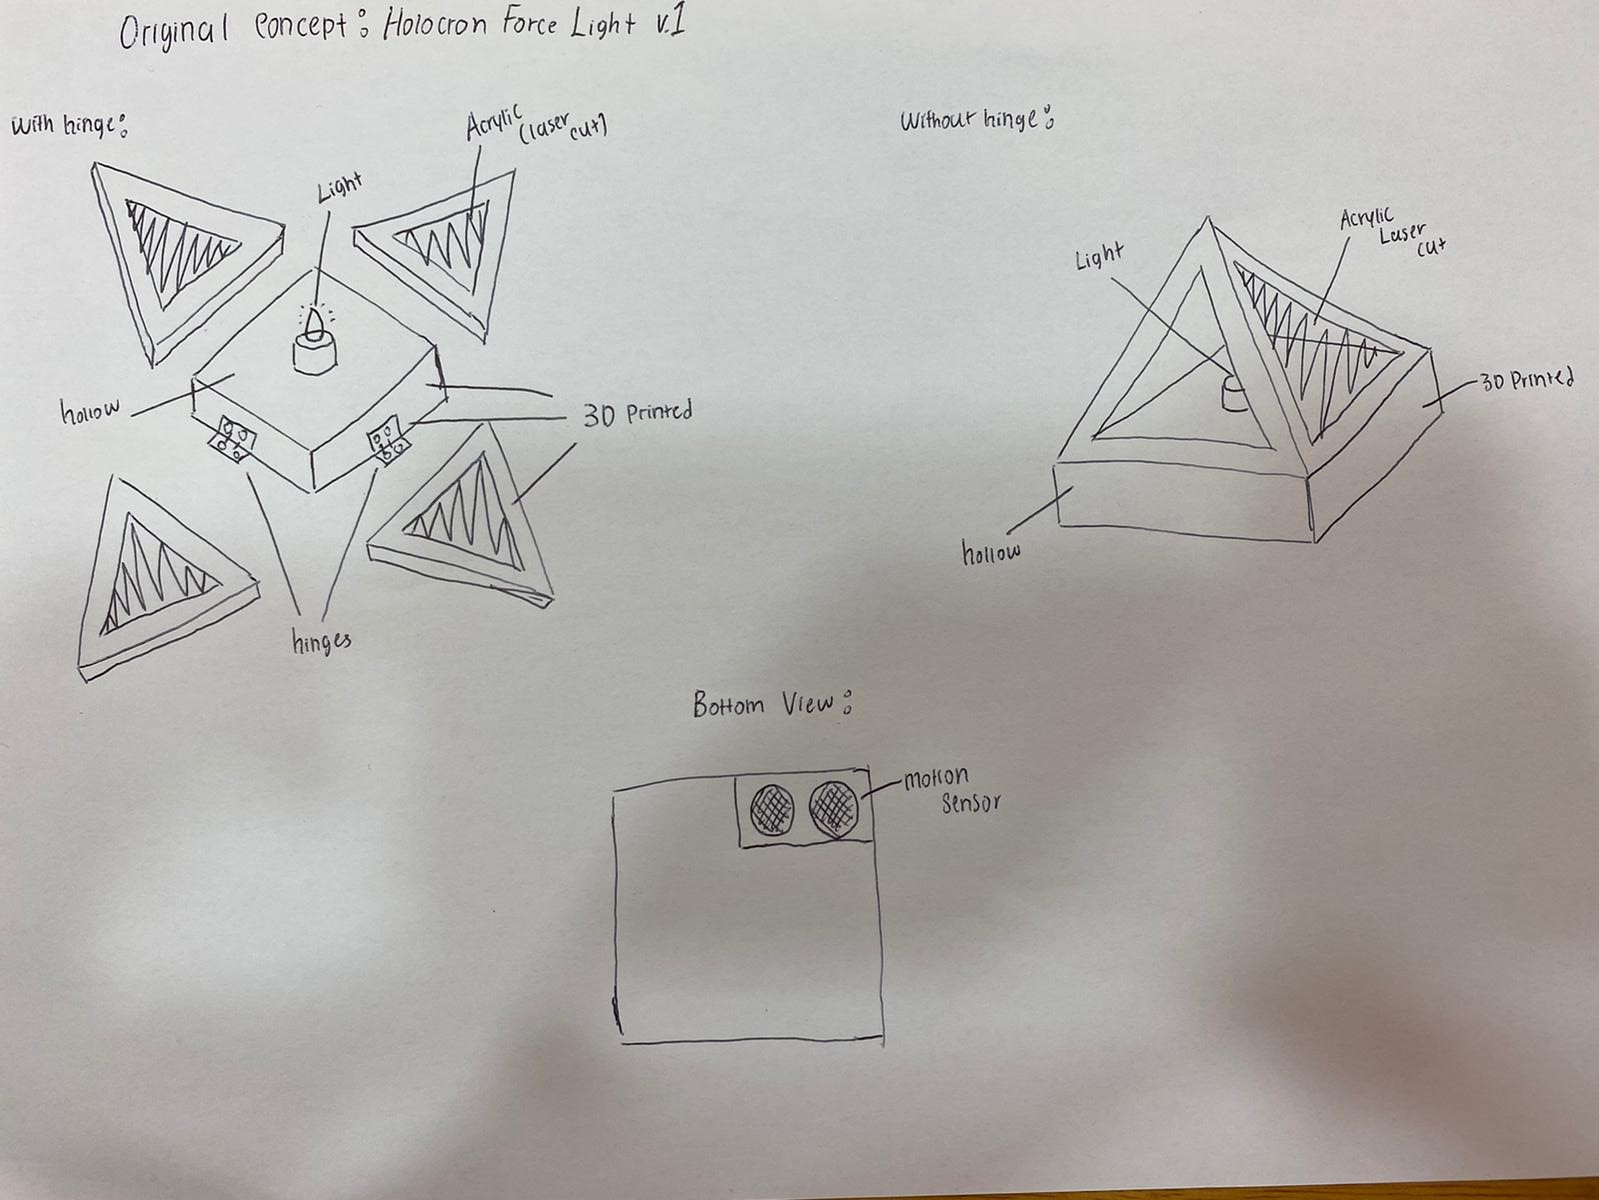 Original Concept: Holocron Force Light v.1
With hinge:
Acrylic
(laser cut)
Light
hollow
3D Printed
hinges
Without hinge:
Acrylic
Laser
cut
Light
3D Printed
hollow
Bottom View:
motion
sensor